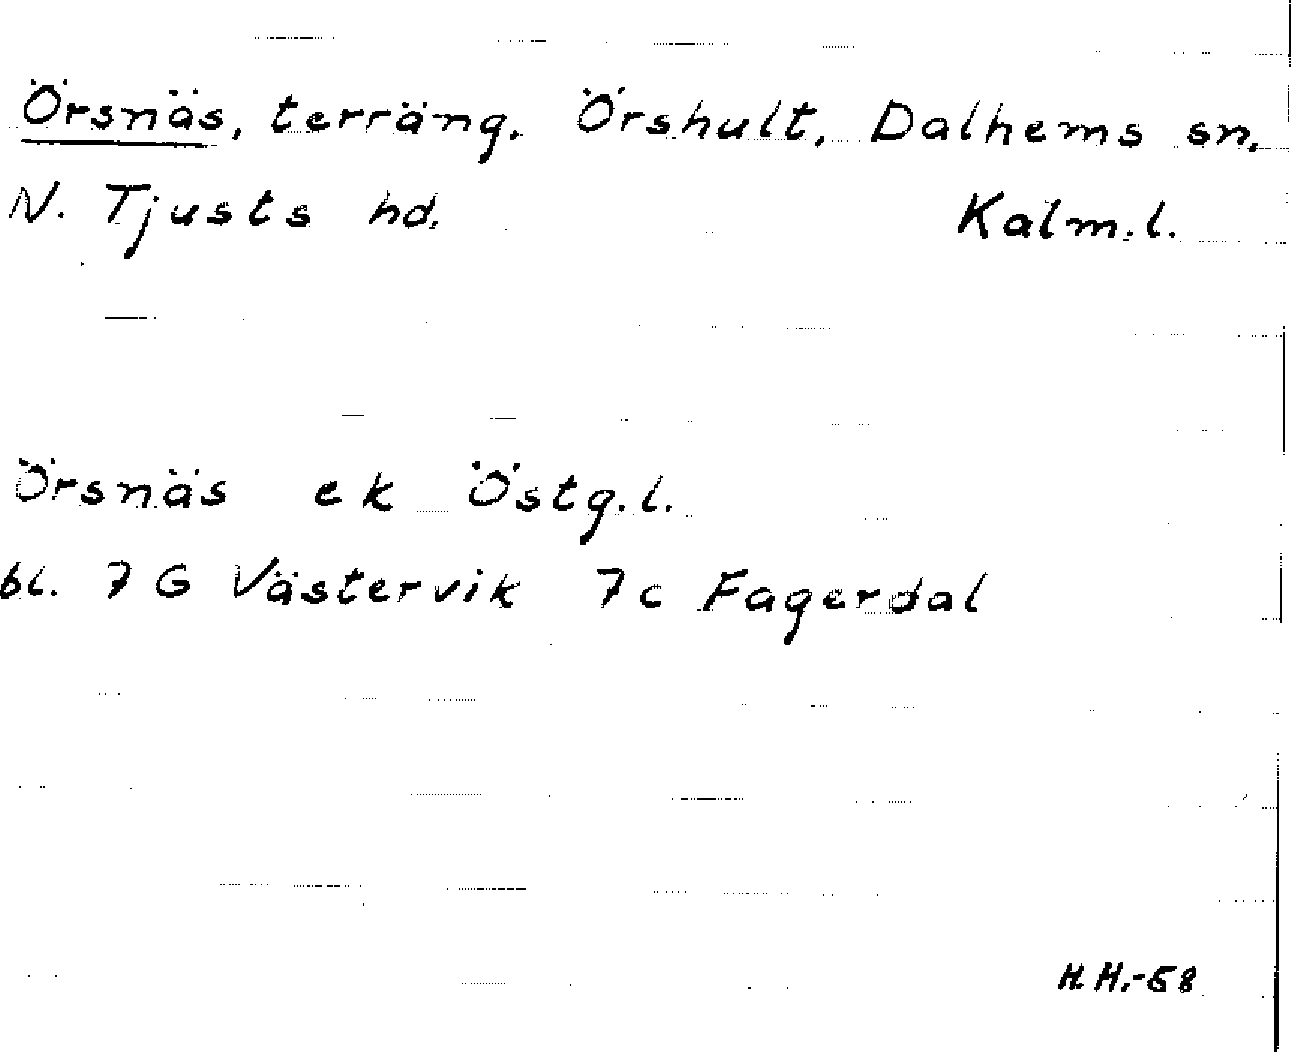 Örsnäs, terräng. Örshult, Dalhems sn.
N. Tjusts hd. Kalm.l.
Örsnäs ek Östg.l.
bl. 7 G Västervik 7c Fagerdal
H.H.-58